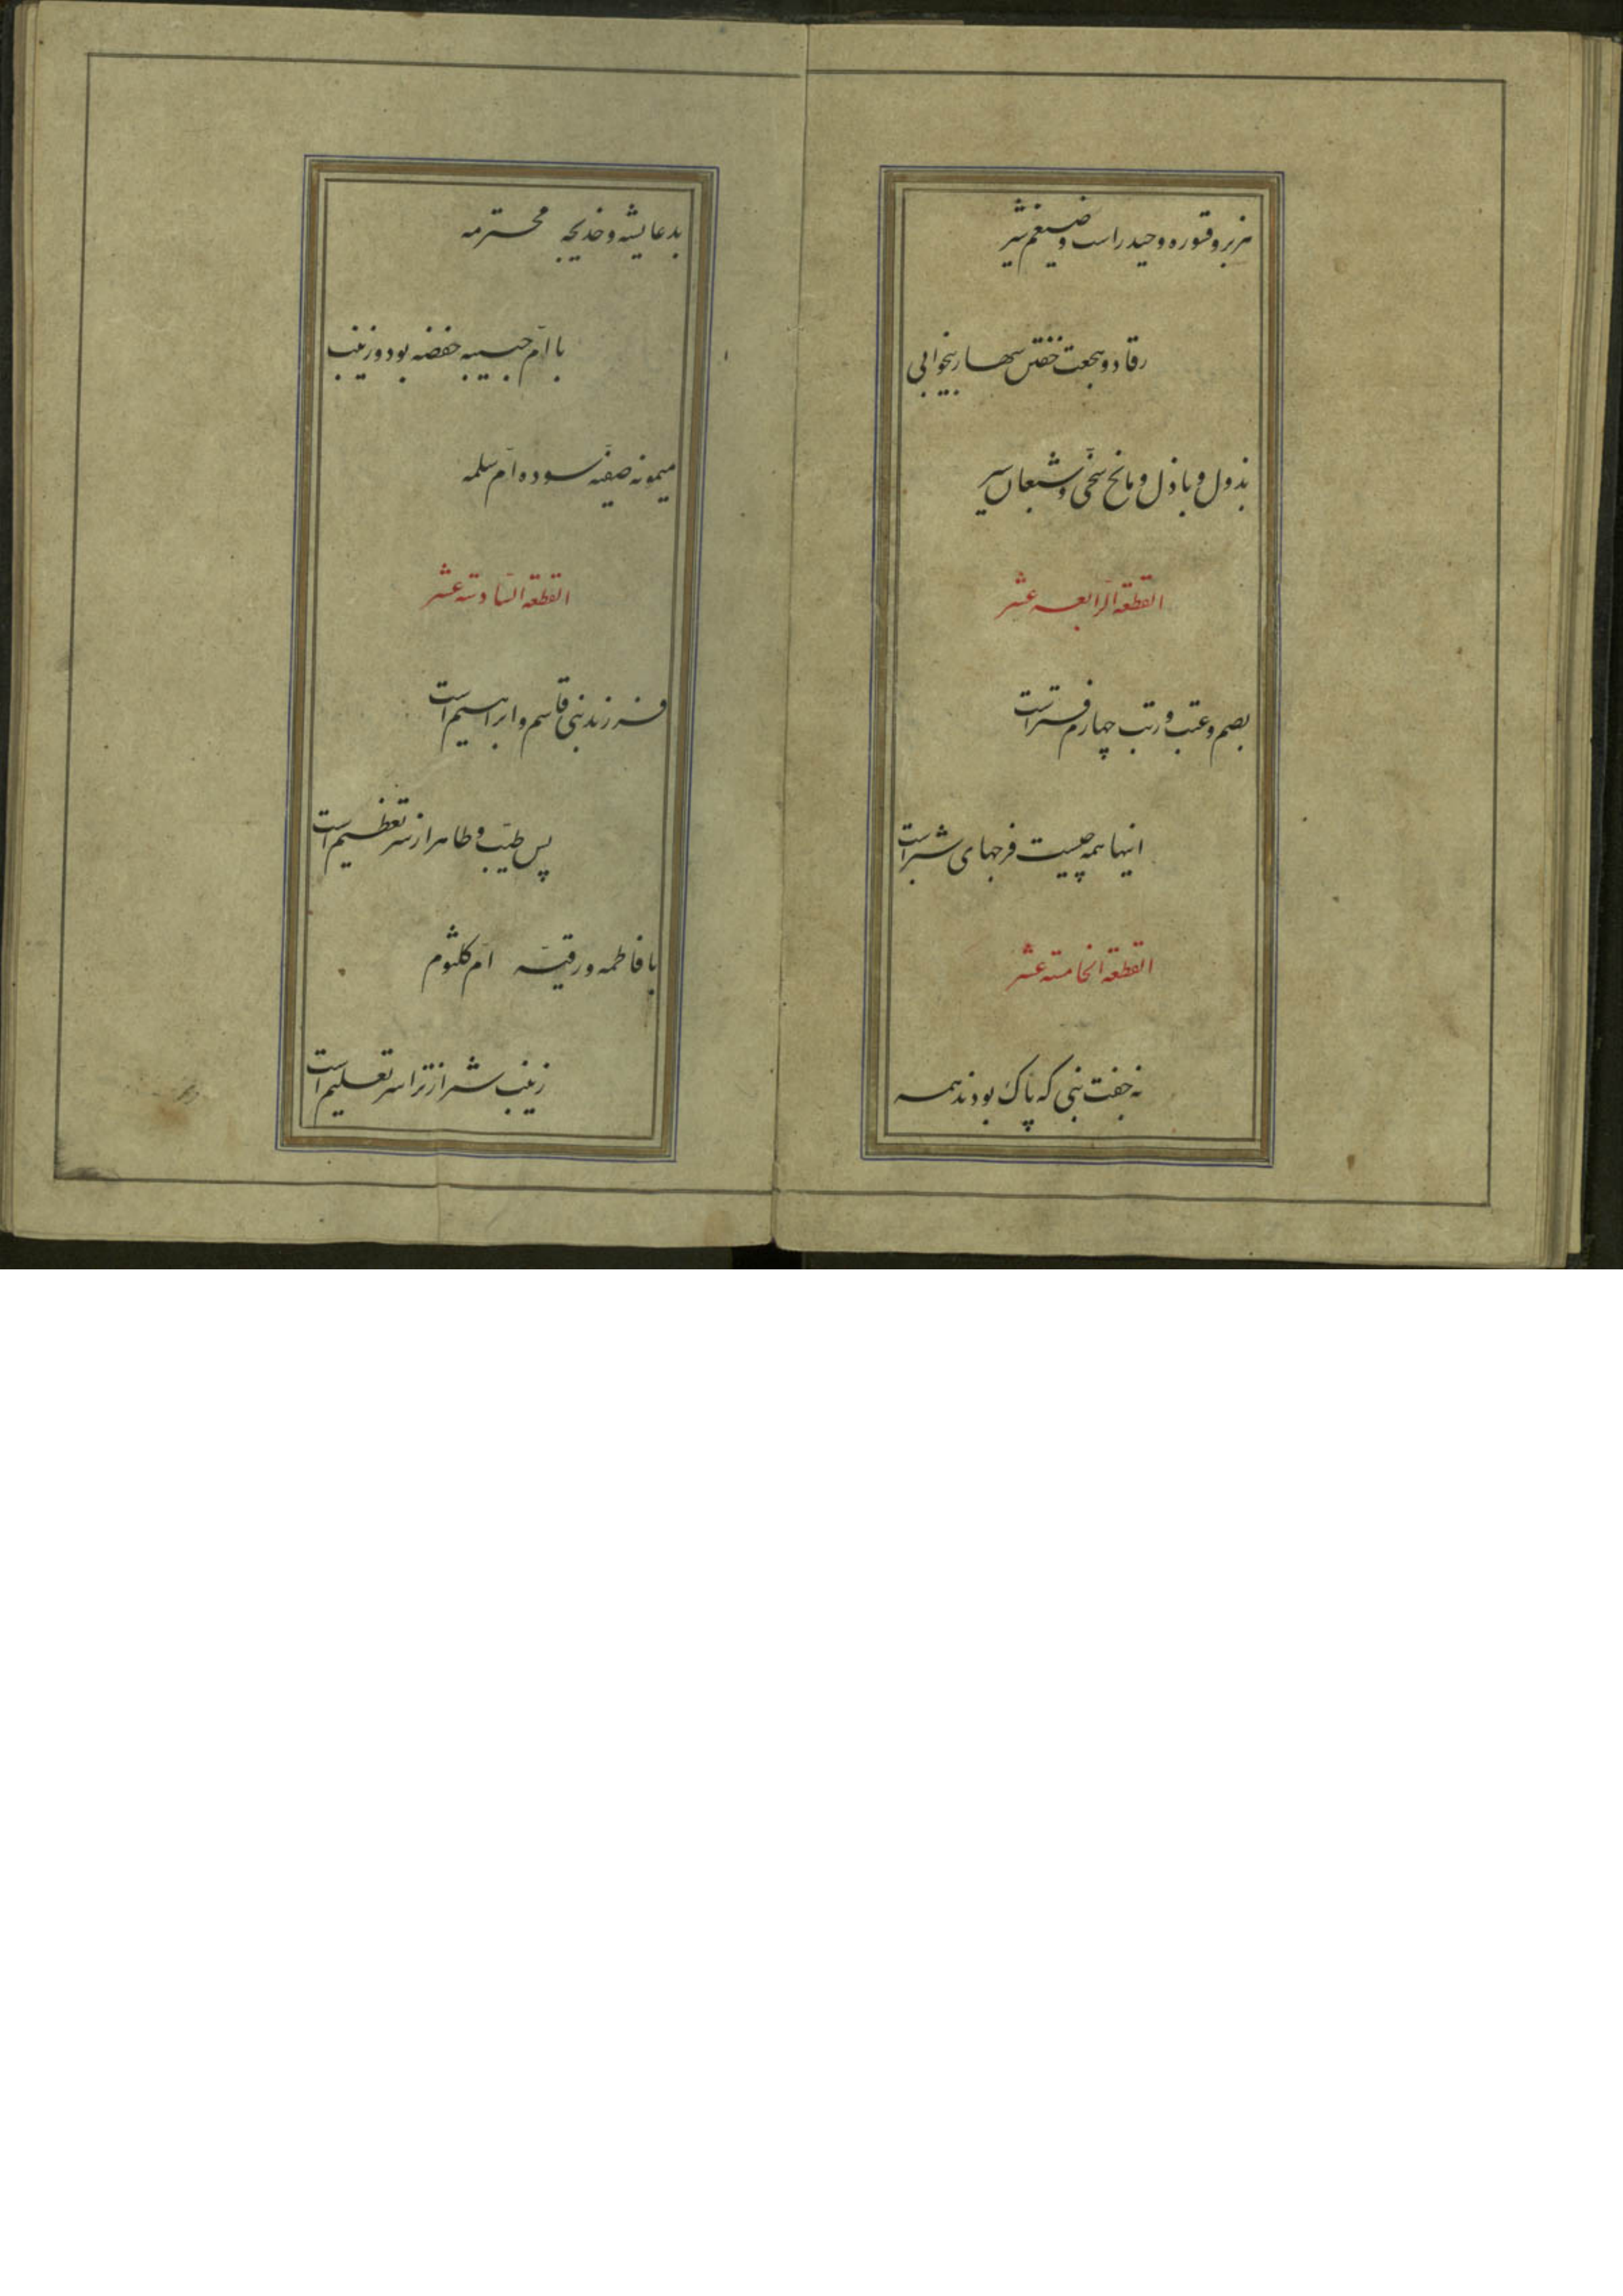 هزبر و قسوره و حیدر است و ضیغم شیر
رقاد و هجعت خفتن سهار بیخوابی
بذول و باذل و مانح سخّی و شبعان سیر
القطعة الرّابعه عشر
بصم و عتب و رتب چهارم فتر است
اینها همه چیست فرجهای شبر است
القطعة الخامسته عشر
نه جفت نبی که پاک بودند همه
بد عایشه و خدیجه محترمه
با امّ حبیبه حفضه بود و زینب
میمونه صفیّه سوده امّ سلمه
القطعة السّادسته عشر
فرزند نبی قاسم و ابراهیم است
پس طیّب و طاهر از سر تعظیم است
با فاطمه و رقیّه امّ کلثوم
زینب شمر از ترا سر تعلیم است